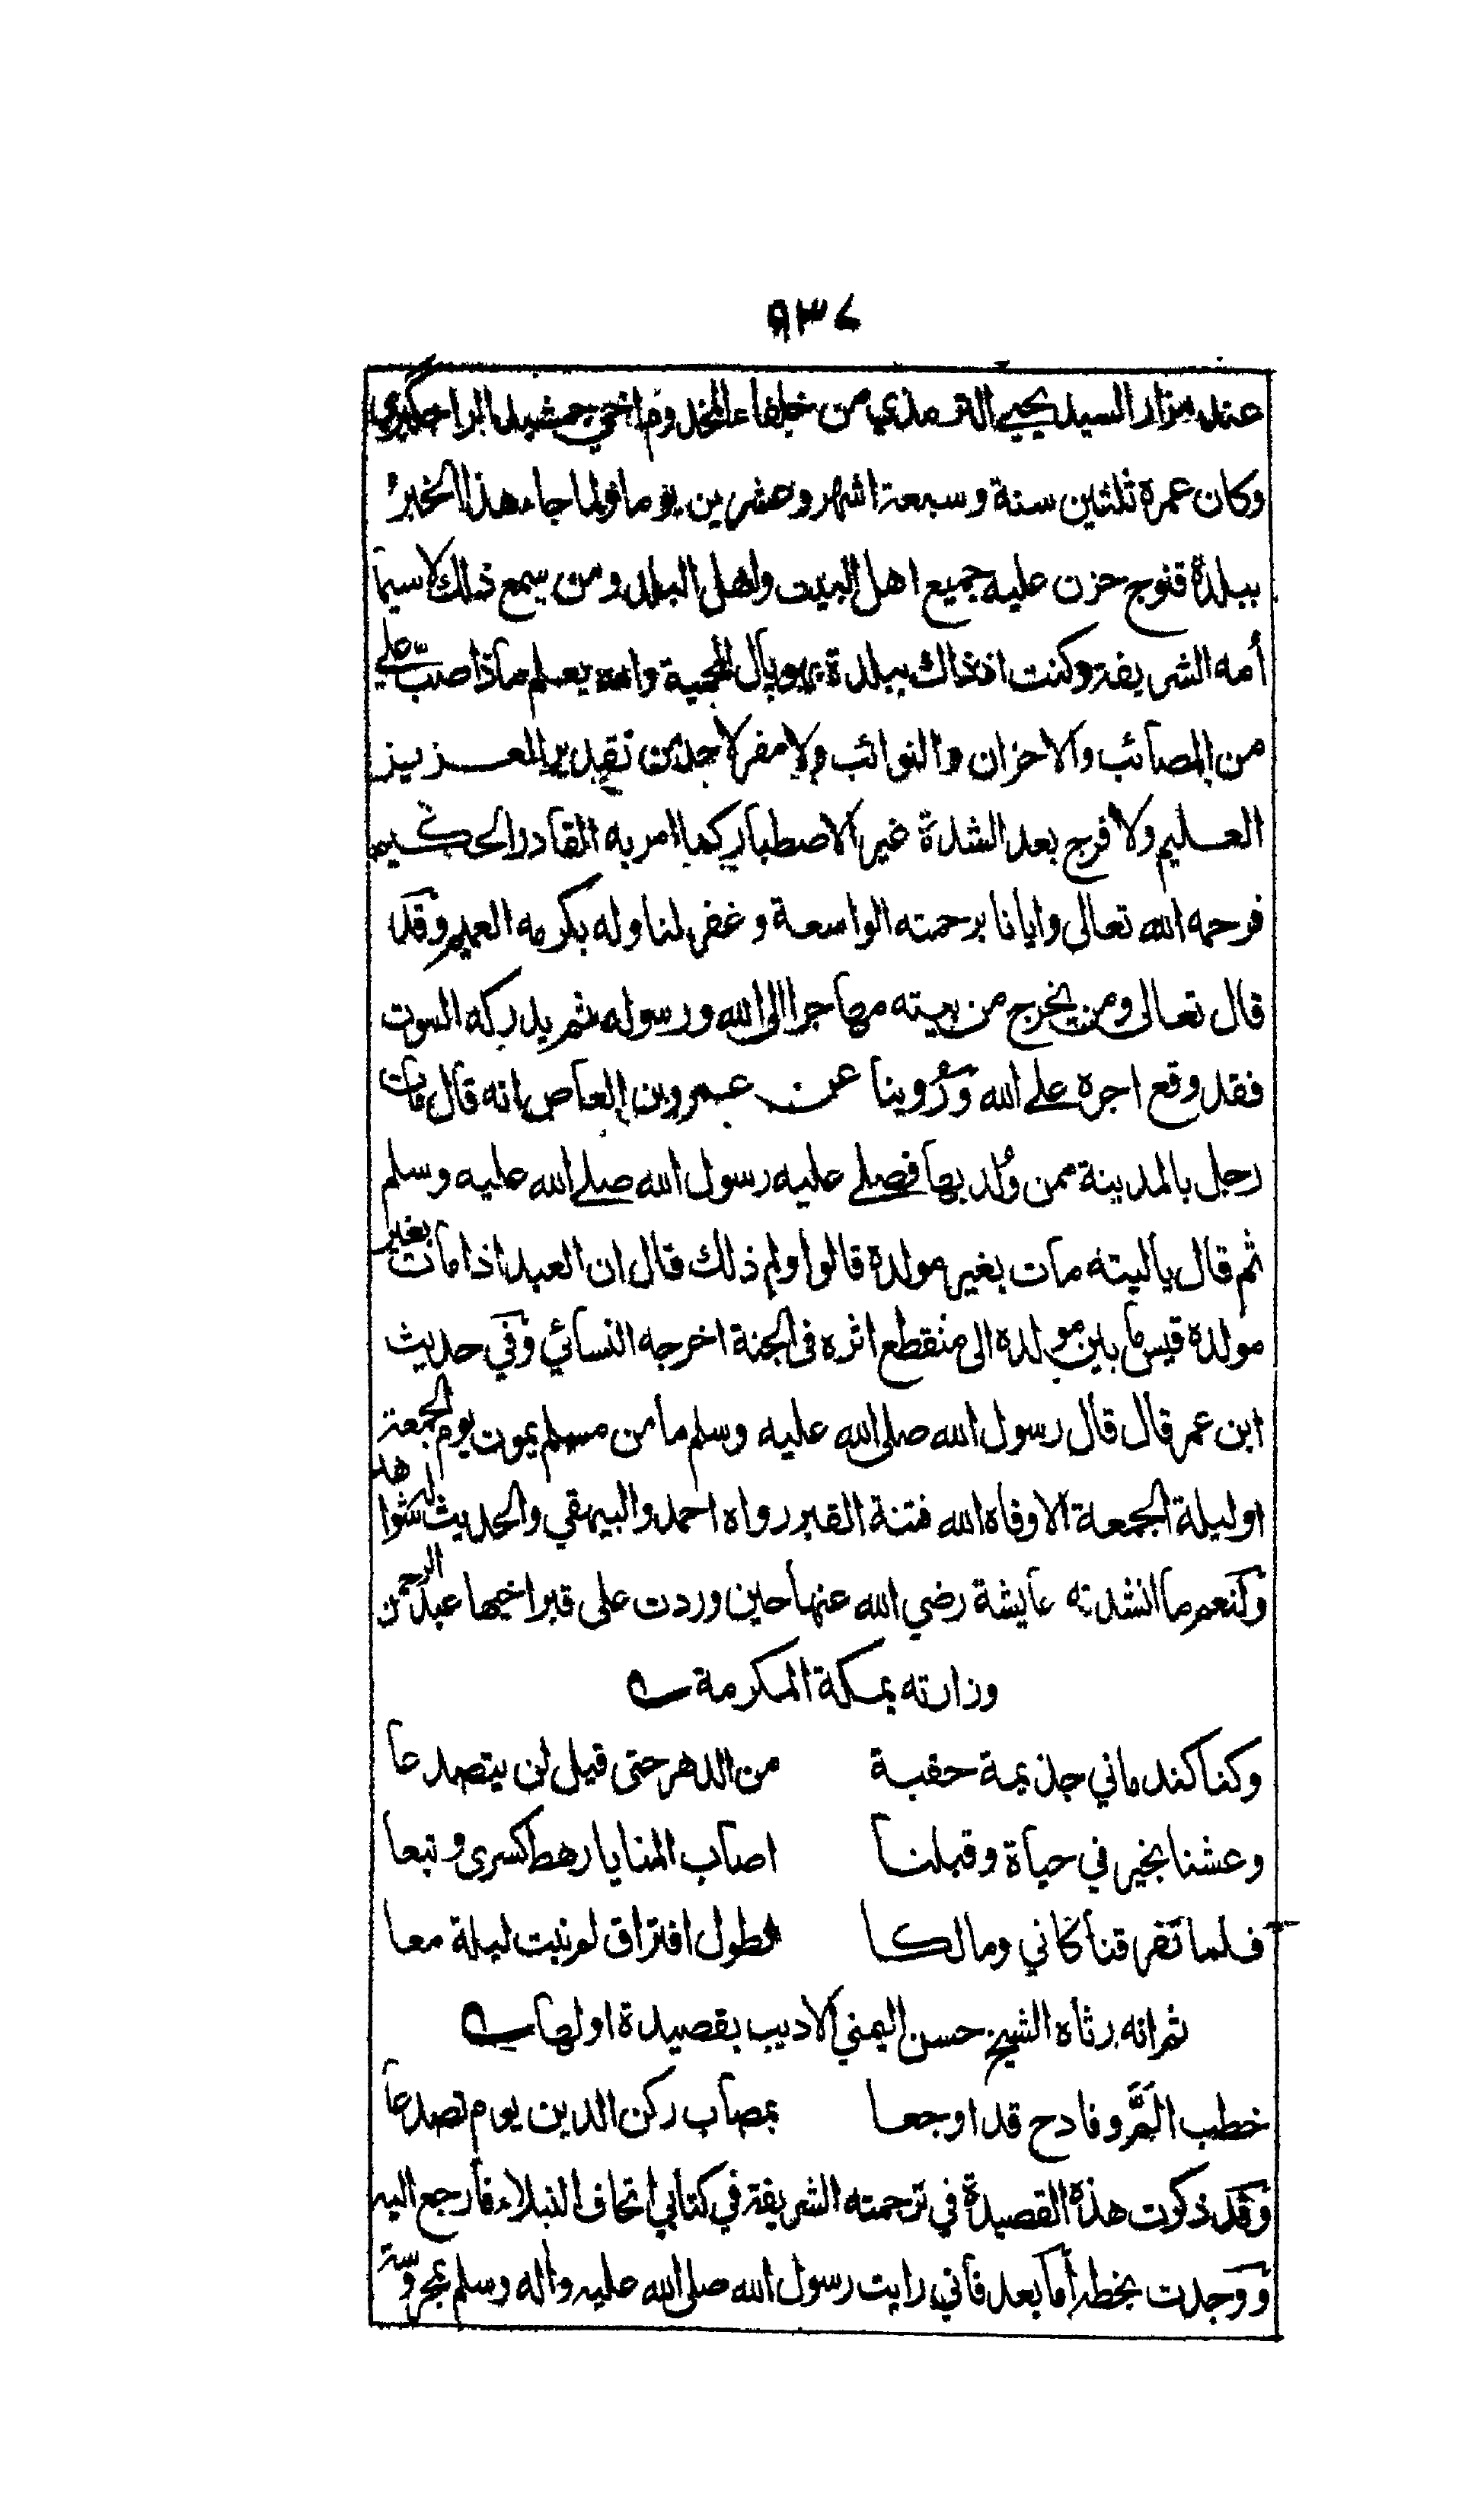 ٩٣٧
عند مزار السيد يحيى الترمذي من خلفاء المخدوم اخي جمشيد الراجگيري
وكان عمره ثلثين سنة وسبعة اشهر وعشرين يوما ولما جاء هذا الخبر
ببلدة قنوج حزن عليه جميع اهل البيت واهل البلد ومن سمع ذلك لا سيما
أمه الشريفة وكنت اذ ذاك ببلدة بهوپال المحمية والله يعلم ماذا صب علي
من المصائب والاحزان والنوائب ولا مفر لاحد من تقدير العزيز
العليم ولا فرج بعد الشدة غير الاصطبار كما امر به القادر الحكيم
فرحمه الله تعالى وايانا برحمته الواسعة وغفر لنا وله بكرمه العميم وقد
قال تعالى ومن يخرج من بيته مهاجرا الى الله ورسوله ثم يدركه الموت
فقد وقع اجره على الله ورُوينا عن عمرو بن العاص انه قال مات
رجل بالمدينة ممن وُلد بها فصلى عليه رسول الله صلى الله عليه وسلم
ثم قال يا ليته مات بغير مولده قالوا ولم ذلك قال ان العبد اذا مات بغير
مولده قيس ما بين مولده الى منقطع اثره في الجنة اخرجه النسائي وفي حديث
ابن عمر قال قال رسول الله صلى الله عليه وسلم ما من مسلم يموت يوم الجمعة
او ليلة الجمعة الا وقاه الله فتنة القبر رواه احمد والبيهقي والحديث له شواهد
ولنعم ما انشدته عايشة رضي الله عنها حين وردت على قبر اخيها عبد الرحمن
وزارته بمكة المكرمة
وكنا كندماني جذيمة حقبة من الدهر حتى قيل لن يتصدعا
وعشنا بخير في حياة وقبلنا اصاب المنايا رهط كسرى وتبعا
فلما تفرقنا كاني ومالكا لطول افتراق لم نبت ليلة معا
ثم انه رثاه الشيخ حسن اليمني الاديب بقصيدة اولها
خطب المَّ وفادح قد اوجعا بمصاب ركن الدين يوم تصدعا
وقد ذكرت هذه القصيدة في ترجمته الشريفة في كتابي اتحاف النبلاء فارجع اليه
ووجدت بخطه أما بعد فاني رايت رسول الله صلى الله عليه واله وسلم بمحروسة